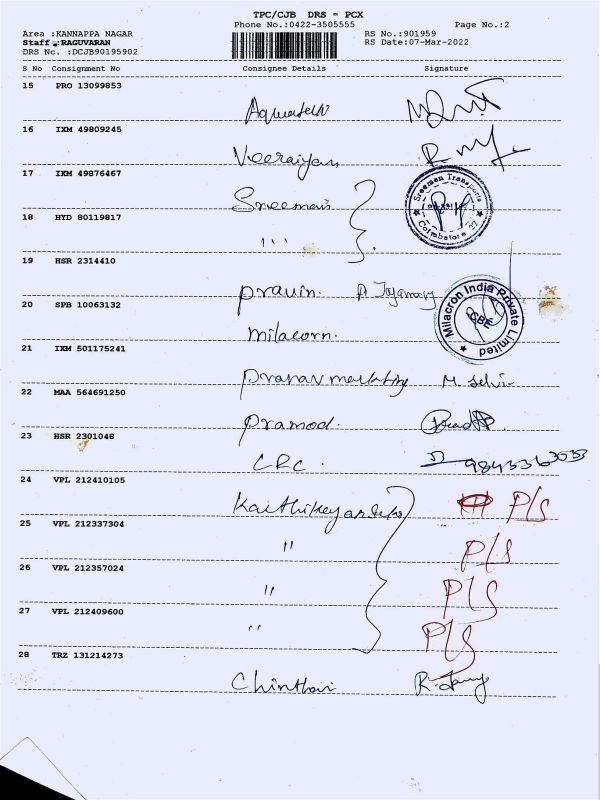 TPC/CJB DRS - PCX
Phone No.:0422-3505555 Page No.:2
Area :KANNAPPA NAGAR RS No.:901959
Staff :RAGUVARAN RS Date:07-Mar-2022
DRS No. :DCJB90195902
S No Consignment No Consignee Details Signature
15 PRO 13099853
16 IXM 49809245
Veeraiyan
17 IXM 49876467
Sreeman Sreeman Transports Coimbatore
18 HYD 80119817
"
19 HSR 2314410
pravin.
20 SPB 10063132
milacorn. Milacron India Private Limited CBE
21 IXM 501175241
Pranav marketing M. Selvi
22 MAA 564691250
Pramod.
23 HSR 2301048
CRC.
24 VPL 212410105
P/S
25 VPL 212337304
" P/S
26 VPL 212357024
" P/S
27 VPL 212409600
" P/S
28 TRZ 131214273